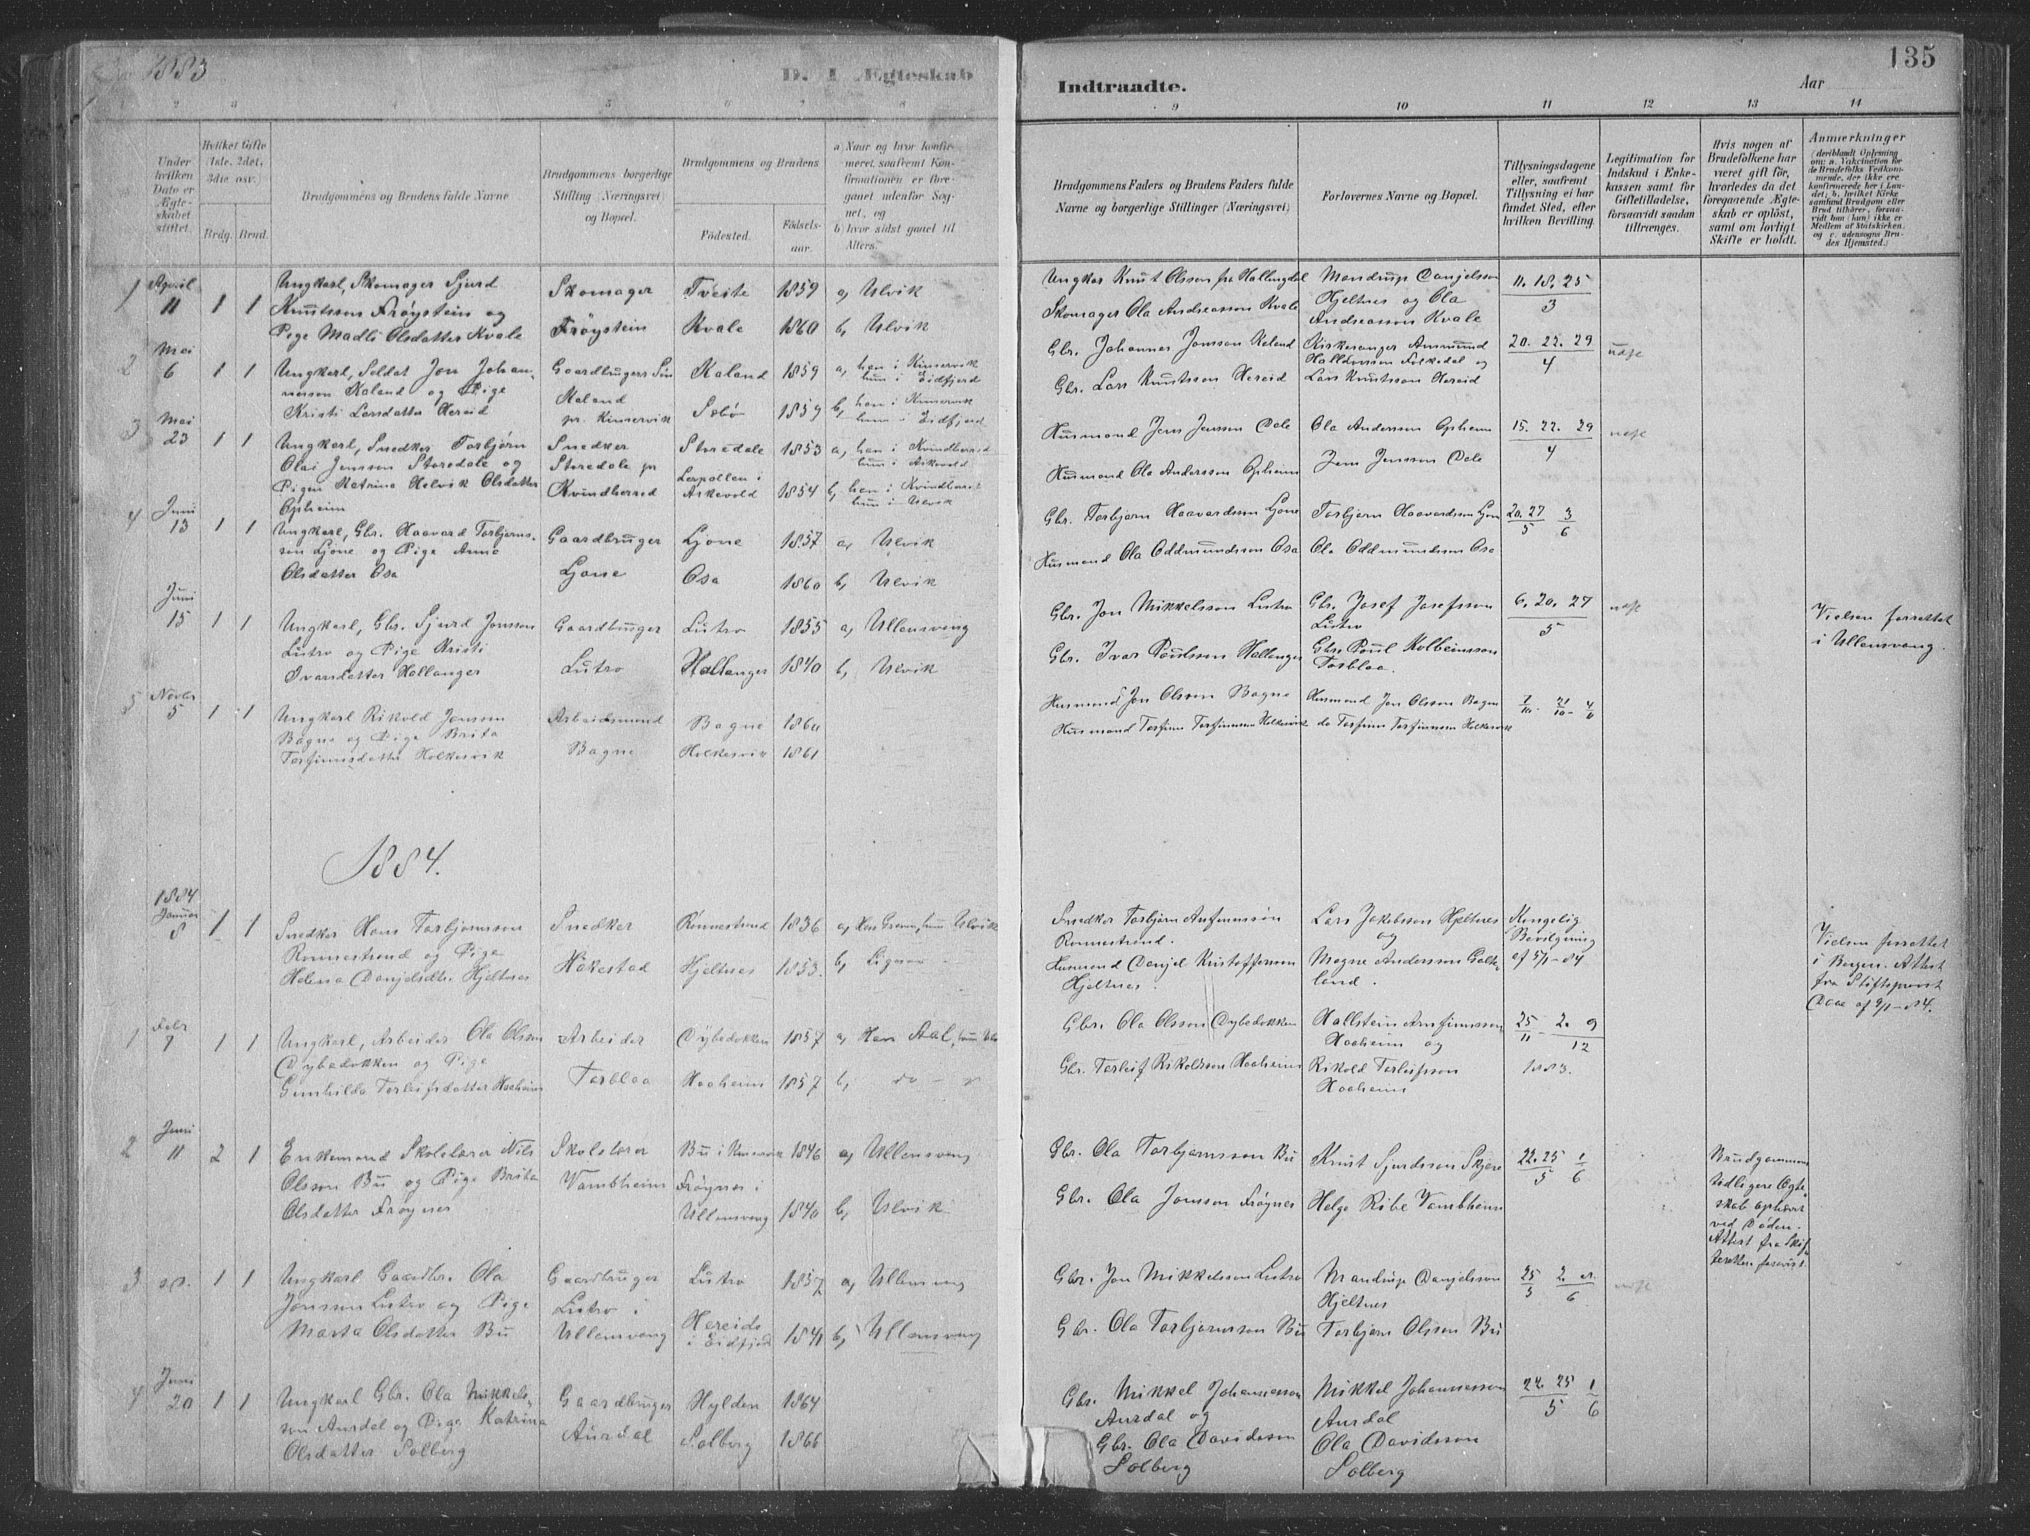 1883
D. I. Ægteskab
Indtraadte.
Aar
135
2 3 4 5 6 7 8 9 10 11 12 13 14
Under hvilken Dato er Ægteskabet stiftet.
Hvilket Gifte (1ste, 2det, 3die osv.)
Brdg. Brud.
Brudgommens og Brudens fulde Navne
Brudgommens borgerlige Stilling (Næringsvei) og Bopæl.
Brudgommens og Brudens
Fødested.
Fødselsaar.
a) Naar og hvor konfirmeret, saafremt Konfirmationen er foregaaet udenfor Sognet, og
b) hvor sidst gaaet til Alters.
Brudgommens Faders og Brudens Faders fulde Navne og borgerlige Stillinger (Næringsvei)
Forlovernes Navne og Bopæl.
Tillysningsdagene eller, saafremt Tillysning ei har fundet Sted, efter hvilken Bevilling.
Legitimation for Indskud i Enkekassen samt for Giftetilladelse, forsaavidt saadan tiltrænges.
Hvis nogen af Brudefolkene har været gift før, hvorledes da det foregaaende Ægteskab er opløst, samt om lovligt Skifte er holdt.
Anmærkninger
1 April 11 1 1
Ungkarl, Skomager Sjurd
Knutsson Frøystein og
Pige Madli Olsdatter Kvale
Skomager
Frøystein
Tveite 1859
Kvale 1860
a, Ulvik
b, Ulvik
Ungkar Knut Olsson fra Hallingdal
Skomager Ola Andreasson Kvale
Mandrup Danjelsson
Hjeltnes og Ola
Andreasson Kvale
11. 18. 25
3
2 Mei 6 1 1
Ungkarl, Soldat Jon Johannesson Kaland og Pige
Kristi Larsdatter Hereid
Gaardbrugers Søn
Kaland
pr. Kinservik
Kaland 1859
Sæbø 1859
a, han i Kinservik
hun i Eidfjord
b, han i Kinservik
hun i Eidfjord
Gbr. Johannes Jonsson Kaland
Gbr. Lars Knutsson Hereid
Kirkesanger Amund
Halldorsson Folkedal og
Lars Knutsson Hereid
20. 22. 29
4
3 Mei 23 1 1
Ungkarl, Snedker Torbjørn
Olai Jensson Storedale og
Pigen Katrina Helvik Olsdatter
Opheim
Snedker
Storedale pr
Kvindherred
Storedale 1853
Lerpollen i
Askevold 1854
a, han i Kvindherred
hun i Askvold
b, han i Kvindherred
hun i Ulvik
Husmand Jens Jensson Dale
Husmand Ola Andersson Opheim
Ola Andersson Opheim
Jens Jensson Dale
15. 22. 29
4
4 Juni 13 1 1
Ungkarl, Gbr. Haavard Torbjørnsson Ljone og Pige Anna
Olsdatter Osa
Gaardbruger
Ljone
Ljone 1857
Osa 1860
a, Ulvik
b, Ulvik
Gbr. Torbjørn Haavardsson Ljone
Husmand Ola Oddmundsson Osa
Torbjørn Haavardsson Ljone
Ola Oddmundsson Osa
20. 27 3
5 6
Juni 15 1 1
Ungkarl, Gbr. Sjurd Jonsson
Lutro og Pige Kristi
Ivarsdatter Hallanger
Gaardbruger
Lutro
Lutro 1855
Hallanger 1840
a, Ullensvang
b, Ulvik
Gbr. Jon Mikkelsson Lutro
Gbr. Ivar Poulsson Hallanger
Gbr. Josef Josefsson
Lutro
Gbr. Poul Kolbeinsson
Torblaa.
6. 20. 27
5
Vielsen forrettet
i Ullensvang.
5 Novbr 5 1 1
Ungkarl Rikold Jonsson
Bagne og Pige Brita
Torfinnsdatter Holkesvik
Arbeidsmand
Bagne
Bagne 1860
Holkesvik 1861
Husmand Jon Olsson Bagne
Husmand Torfinn Torfinnsson Holkesvik
Husmand Jon Olsson Bagne
do Torfinn Torfinnsson Holkesvik
1884.
1884 Januar 8 1 1
Snedker Hans Torbjørnsson
Ronnestrand og Pige
Helena Danjelsdtr. Hjeltnes
Snedker
Håkestad
Rönnestrand 1836
Hjeltnes 1853.
b, Ligesaa
Snedker Torbjørn Anfinnssön
Ronnestrand.
Husmand Danjel Kristoffersson
Hjeltnes.
Lars Jakobsson Hjeltnes
og
Magne Andersson
Kongelig
Bevilgning
af 5/1-84
Vielsen forrettet
i Bergen. Attest
fra Stiftsprovst
Daae af 9/1-84.
1 Febr 7 1 1
Ungkarl, Arbeider Ola Olsson
Dybedokken og Pige
Gunhilda Torleifsdatter Haaheim
Arbeider
Torblaa
Dybedokken 1857
Haaheim 1857
a, Han Aal,
b, do
Gbr. Ola Olsson Dybedokken
Gbr. Torleif Rikoldsson Haaheim
Hallstein Arnfinnsson
Haaheim og
Rikold Torleifsson
Haaheim
25 2. 9
11 12
1883.
2 Juni 11 2 1
Enkemand Skolelærer Nils
Olsson Bu og Pige Brita
Olsdatter Frøynes
Skolelærer
Vambheim
Bu i Kinservik 1846
Frøynes i
Ullensvang 1840
a, Ullensvang
b, Ulvik
Gbr. Ola Torbjørnsson Bu
Gbr. Ola Jonsson Frøynes
Knut Sjurdsson Skjere
Helge Ribe Vambheim
22. 25 1
5 6
Brudgommens
tidligere Ægteskab ophævet
ved Døden.
Attest fra Skifteretten forevist.
3 1 1
Ungkarl Gaardbr. Ola
Jonsson Lutro og Pige
Marta Olsdatter Bu
Gaardbruger
Lutro i
Ullensvang
Lutro 1857
Hereid
i Eidfjord 1841
a, Ullensvang
b, Ullensvang
Gbr. Jon Mikkelsson Lutro
Gbr. Ola Torbjørnsson Bu
Mandrup Danjelsson
Hjeltnes
Torbjørn Olsson Bu
4 Juni 20 1 1
Ungkarl Gbr. Ola Mikkelsson Aurdal og Pige Katrina
Olsdatter Solberg
Gaardbruger
Aurdal
Hylden 1864
Solberg 1866
Gbr. Mikkel Johannesson
Aurdal og
Gbr. Ola Davidsson
Solberg
Mikkel Johannesson
Aurdal
Ola Davidsson
Solberg
22. 25 1
5 6